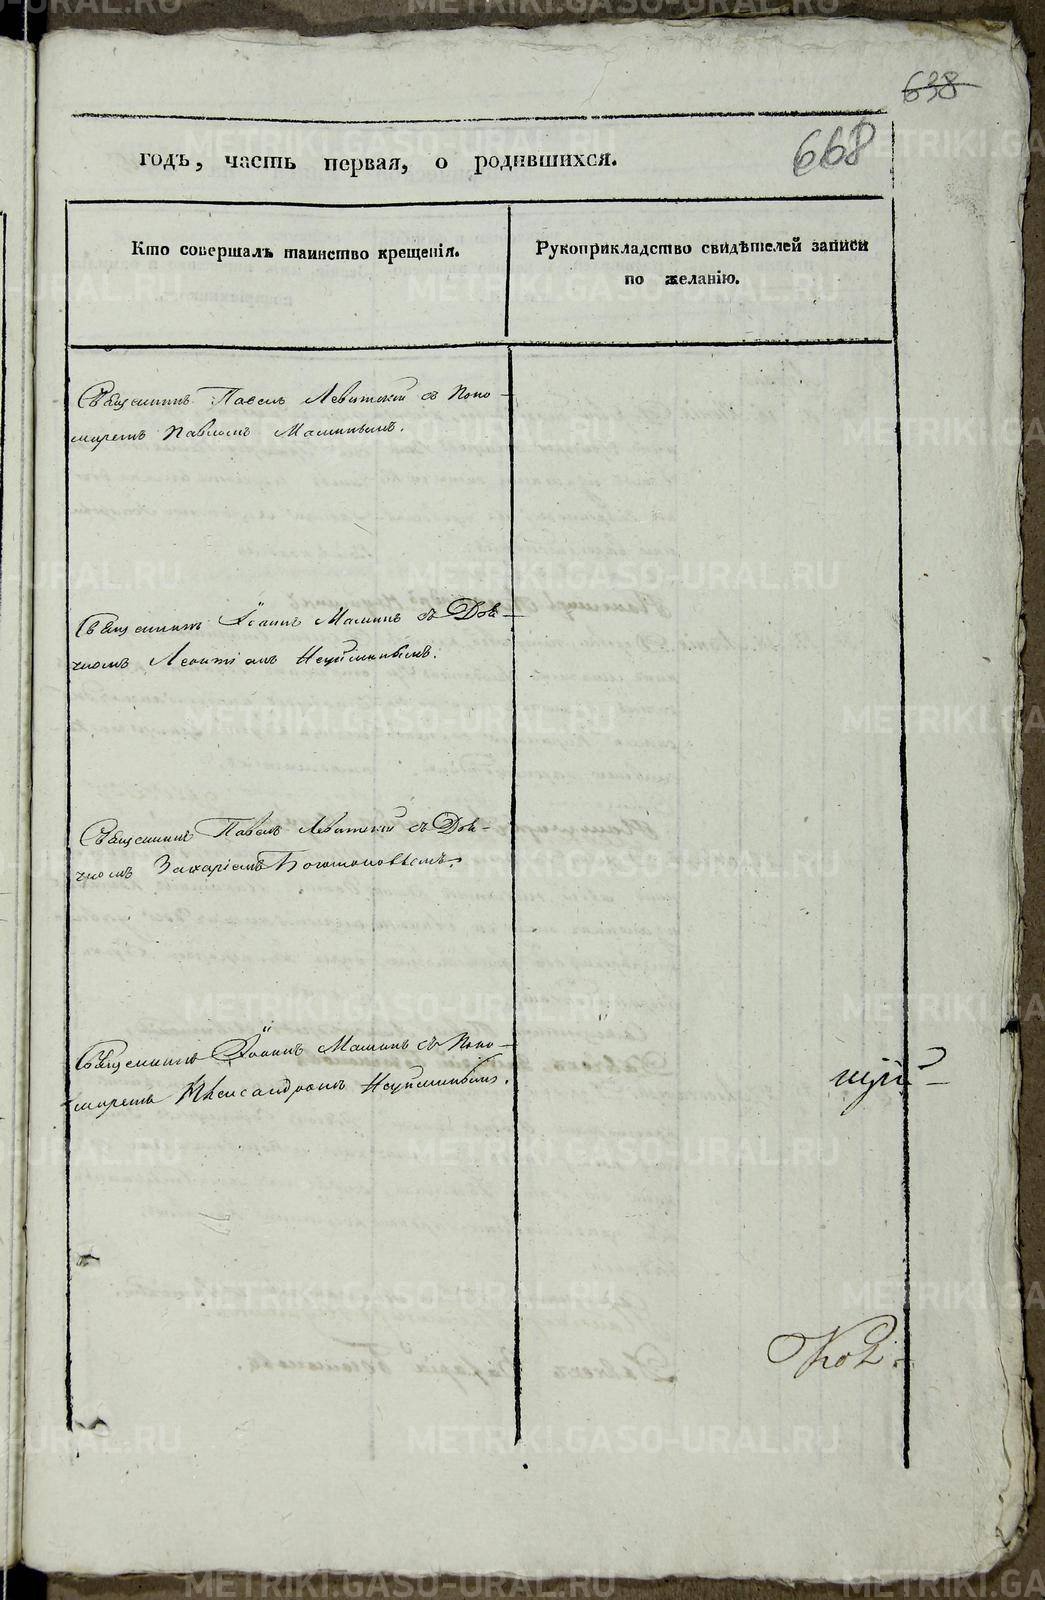 638
668
годъ, часть первая, о родившихся.
Кто совершалъ таинство крещенія.
Рукоприкладство свидѣтелей записи
по желанію.
Священникъ Павелъ Левитскій съ Поно-
маремъ Павломъ Маминымъ.
Священникъ Іоаннъ Маминъ съ Дья-
чкомъ Леонтіемъ Неуйминымъ.
Священникъ Павелъ Левитскій съ Дья-
чкомъ Захаріемъ Богомоловымъ.
Священникъ Іоаннъ Маминъ съ Поно-
маремъ Александромъ Неуйминымъ.
METRIKI.GASO-URAL.RU